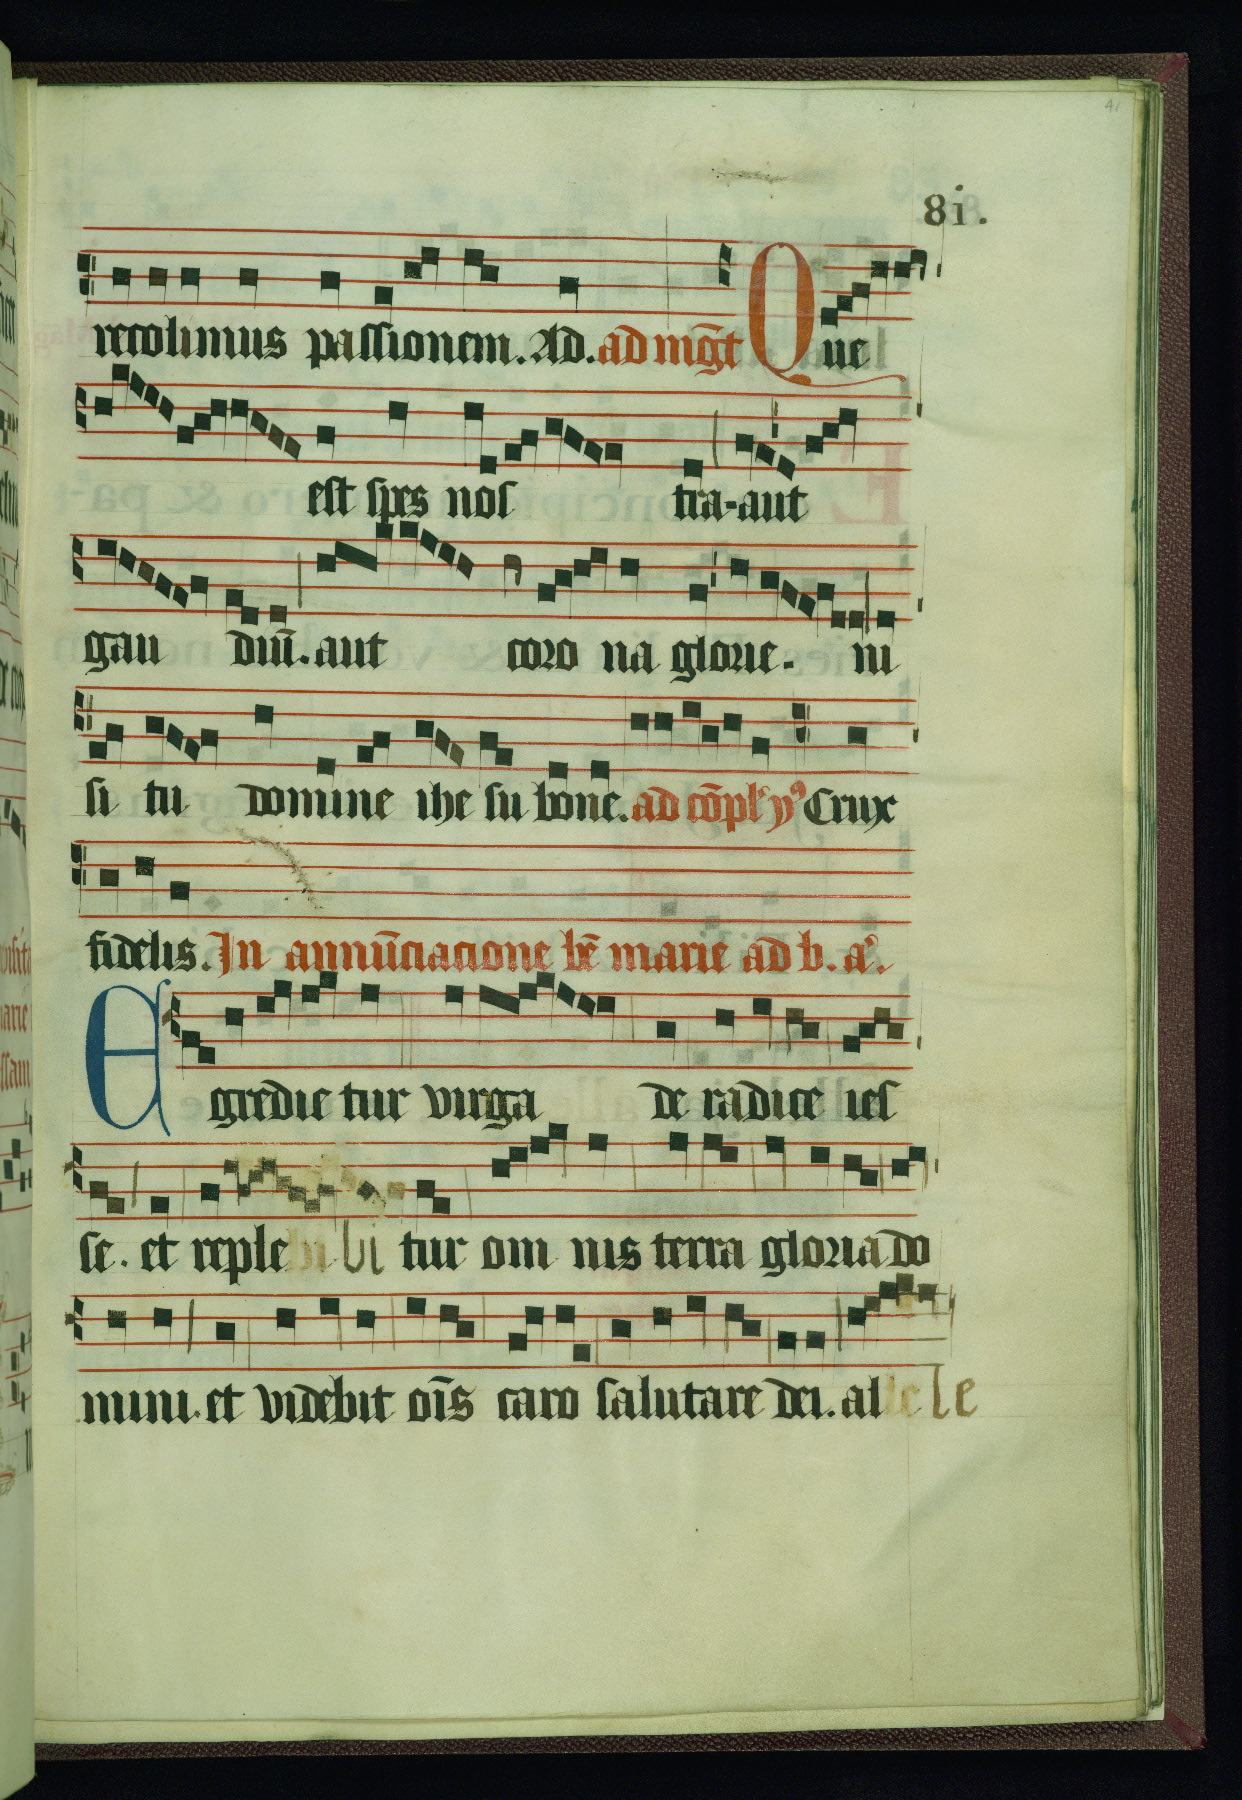 41
8i.
recolimus passionem. Ad. ad mḡt Que
est spes nos tra-aut
gau diū. aut coro na glorie. ni
si tu domine ihe su bone. ad cōpl' y⁹ Crux
fidelis. In annūciacione bē marie ad b. a⁾.
Egredie tur virga de radice ies
se. et reple bi tur om nis terra gloria do
mini. et videbit oīs caro salutare dei. al le